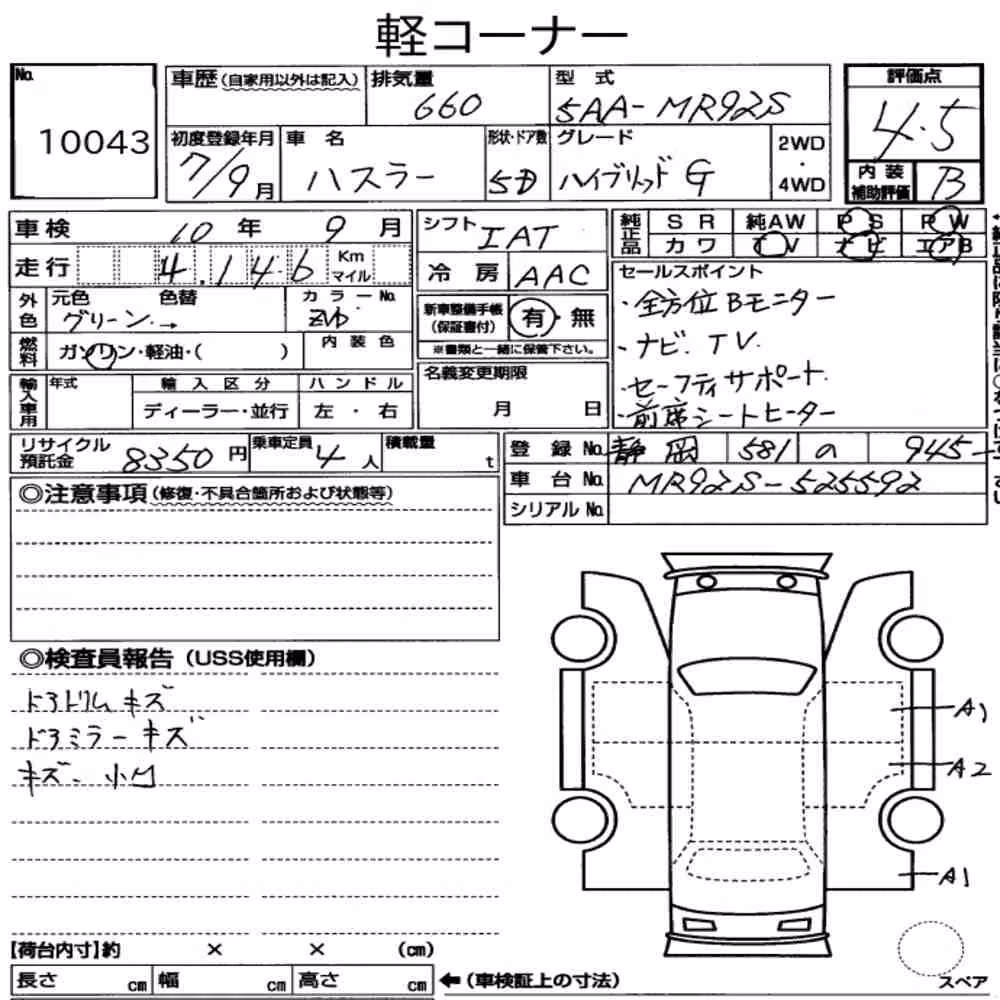 軽コーナー
No. 10043
車歴(自家用以外は記入) 排気量 660 型式 5AA-MR92S
初度登録年月 7/9月 車名 ハスラー 形状・ドア数 5D グレード ハイブリッド G 2WD・4WD
評価点 4.5
内装補助評価 B
車検 10年 9月
走行 4,146 Km マイル
外色 元色 グリーン→ 色替 カラーNo. ZVD
燃料 ガソリン・軽油・( ) 内装色
輸入車用 年式 輸入区分 ディーラー・並行 ハンドル 左・右
シフト IAT
冷房 AAC
新車整備手帳(保証書付) 有・無
※書類と一緒に保管下さい。
名義変更期限 月 日
純正品 SR 純AW PS PW
カワ TV ナビ エアB
セールスポイント
・全方位Bモニター
・ナビ.TV.
・セーフティサポート.
・前席シートヒーター
リサイクル預託金 8350円 乗車定員 4人 積載量 t
登録No. 静岡 581 の 945
車台No. MR92S-525592
シリアルNo.
◎注意事項(修復・不具合箇所および状態等)
◎検査員報告(USS使用欄)
ドアトリム キズ
ドアミラーキズ
キズ、小凹
A1
A2
A1
スペア
【荷台内寸】約 × × (cm)
長さ cm 幅 cm 高さ cm ←(車検証上の寸法)